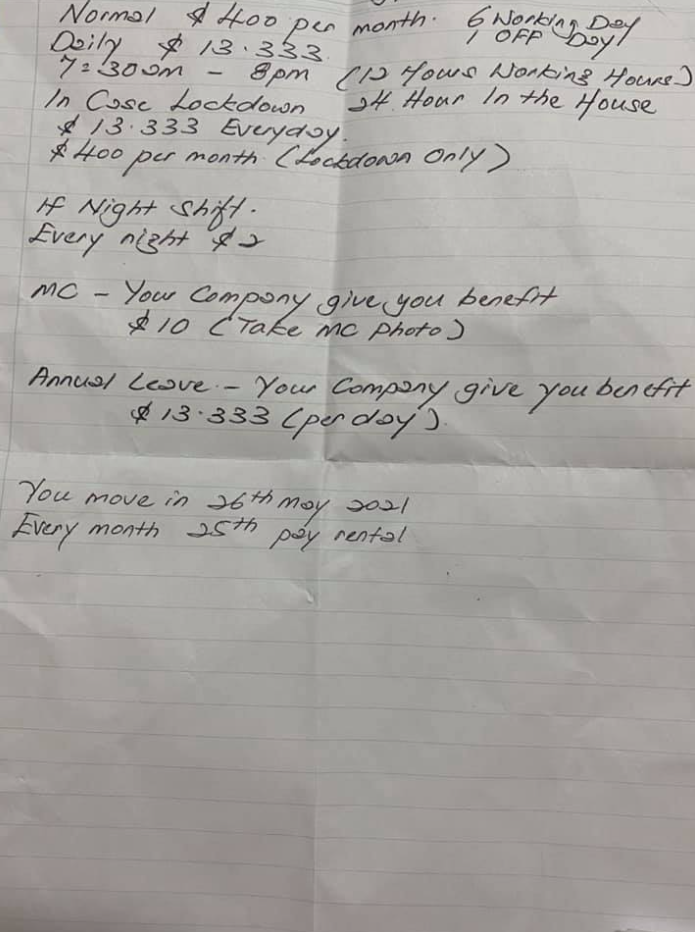 Normal $ 400 per month. 6 Working Day
Daily $ 13.333 1 OFF Day
7:30am - 8pm (12 Hours Working Hours)
In Case Lockdown 24 Hour In the House
$ 13.333 Everyday.
$ 400 per month (Lockdown Only)
If Night Shift.
Every night $2
MC - Your Company give you benefit
$10 (Take MC Photo)
Annual Leave - Your Company give you benefit
$13.333 (per day).
You move in 26th may 2021
Every month 25th pay rental